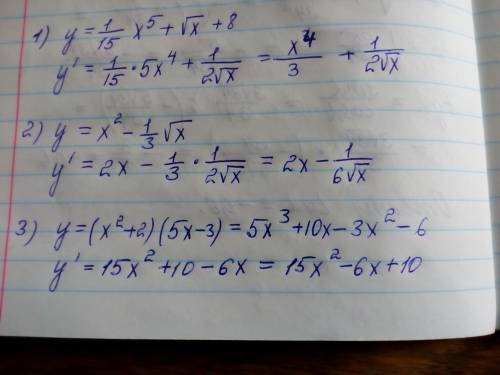 1) y = 1/15 x⁵ + √x + 8
y' = 1/15 · 5x⁴ + 1/(2√x) = x⁴/3 + 1/(2√x)
2) y = x² - 1/3 √x
y' = 2x - 1/3 · 1/(2√x) = 2x - 1/(6√x)
3) y = (x²+2)(5x-3) = 5x³+10x-3x²-6
y' = 15x²+10-6x = 15x²-6x+10